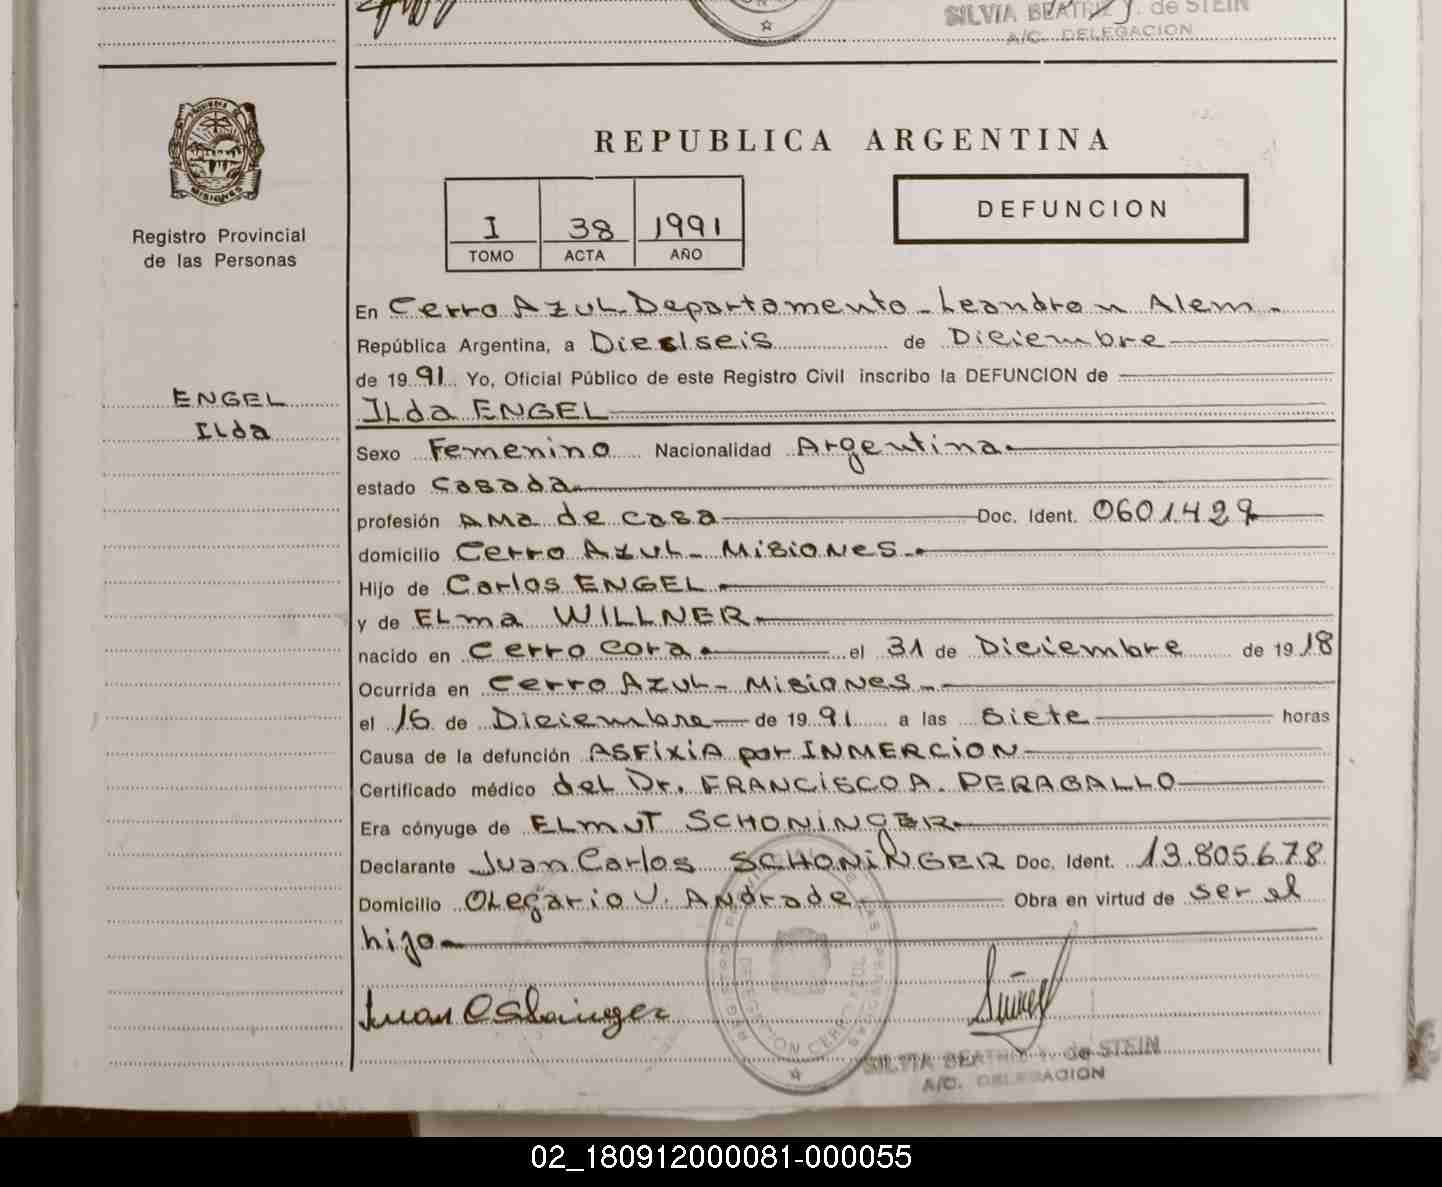 SILVIA BEATRIZ J. de STEIN
A/C. DELEGACION
REPUBLICA ARGENTINA
I 38 1991
TOMO ACTA AÑO
DEFUNCION
Registro Provincial
de las Personas
ENGEL
Ilda
En Cerro Azul Departamento - Leandro N Alem -
República Argentina, a Dieciseis de Diciembre
de 1991 Yo, Oficial Público de este Registro Civil inscribo la DEFUNCION de
Ilda ENGEL
Sexo Femenino Nacionalidad Argentina
estado Casada
profesión Ama de casa Doc. Ident. 0601.429
domicilio Cerro Azul - Misiones
Hijo de Carlos ENGEL
y de Elma WILLNER
nacido en Cerro Cora el 31 de Diciembre de 1918
Ocurrida en Cerro Azul - Misiones
el 16 de Diciembre de 1991 a las Siete horas
Causa de la defunción ASFIXIA por INMERCION
Certificado médico del Dr. FRANCISCO A. PERAGALLO
Era cónyuge de ELMUT SCHONINGER
Declarante Juan Carlos SCHONINGER Doc. Ident. 13.805.678
Domicilio Olegario V. Andrade Obra en virtud de ser el
hijo
DELEGACION CERRO AZUL
SILVIA BEATRIZ J. de STEIN
A/C. DELEGACION
02_180912000081-000055